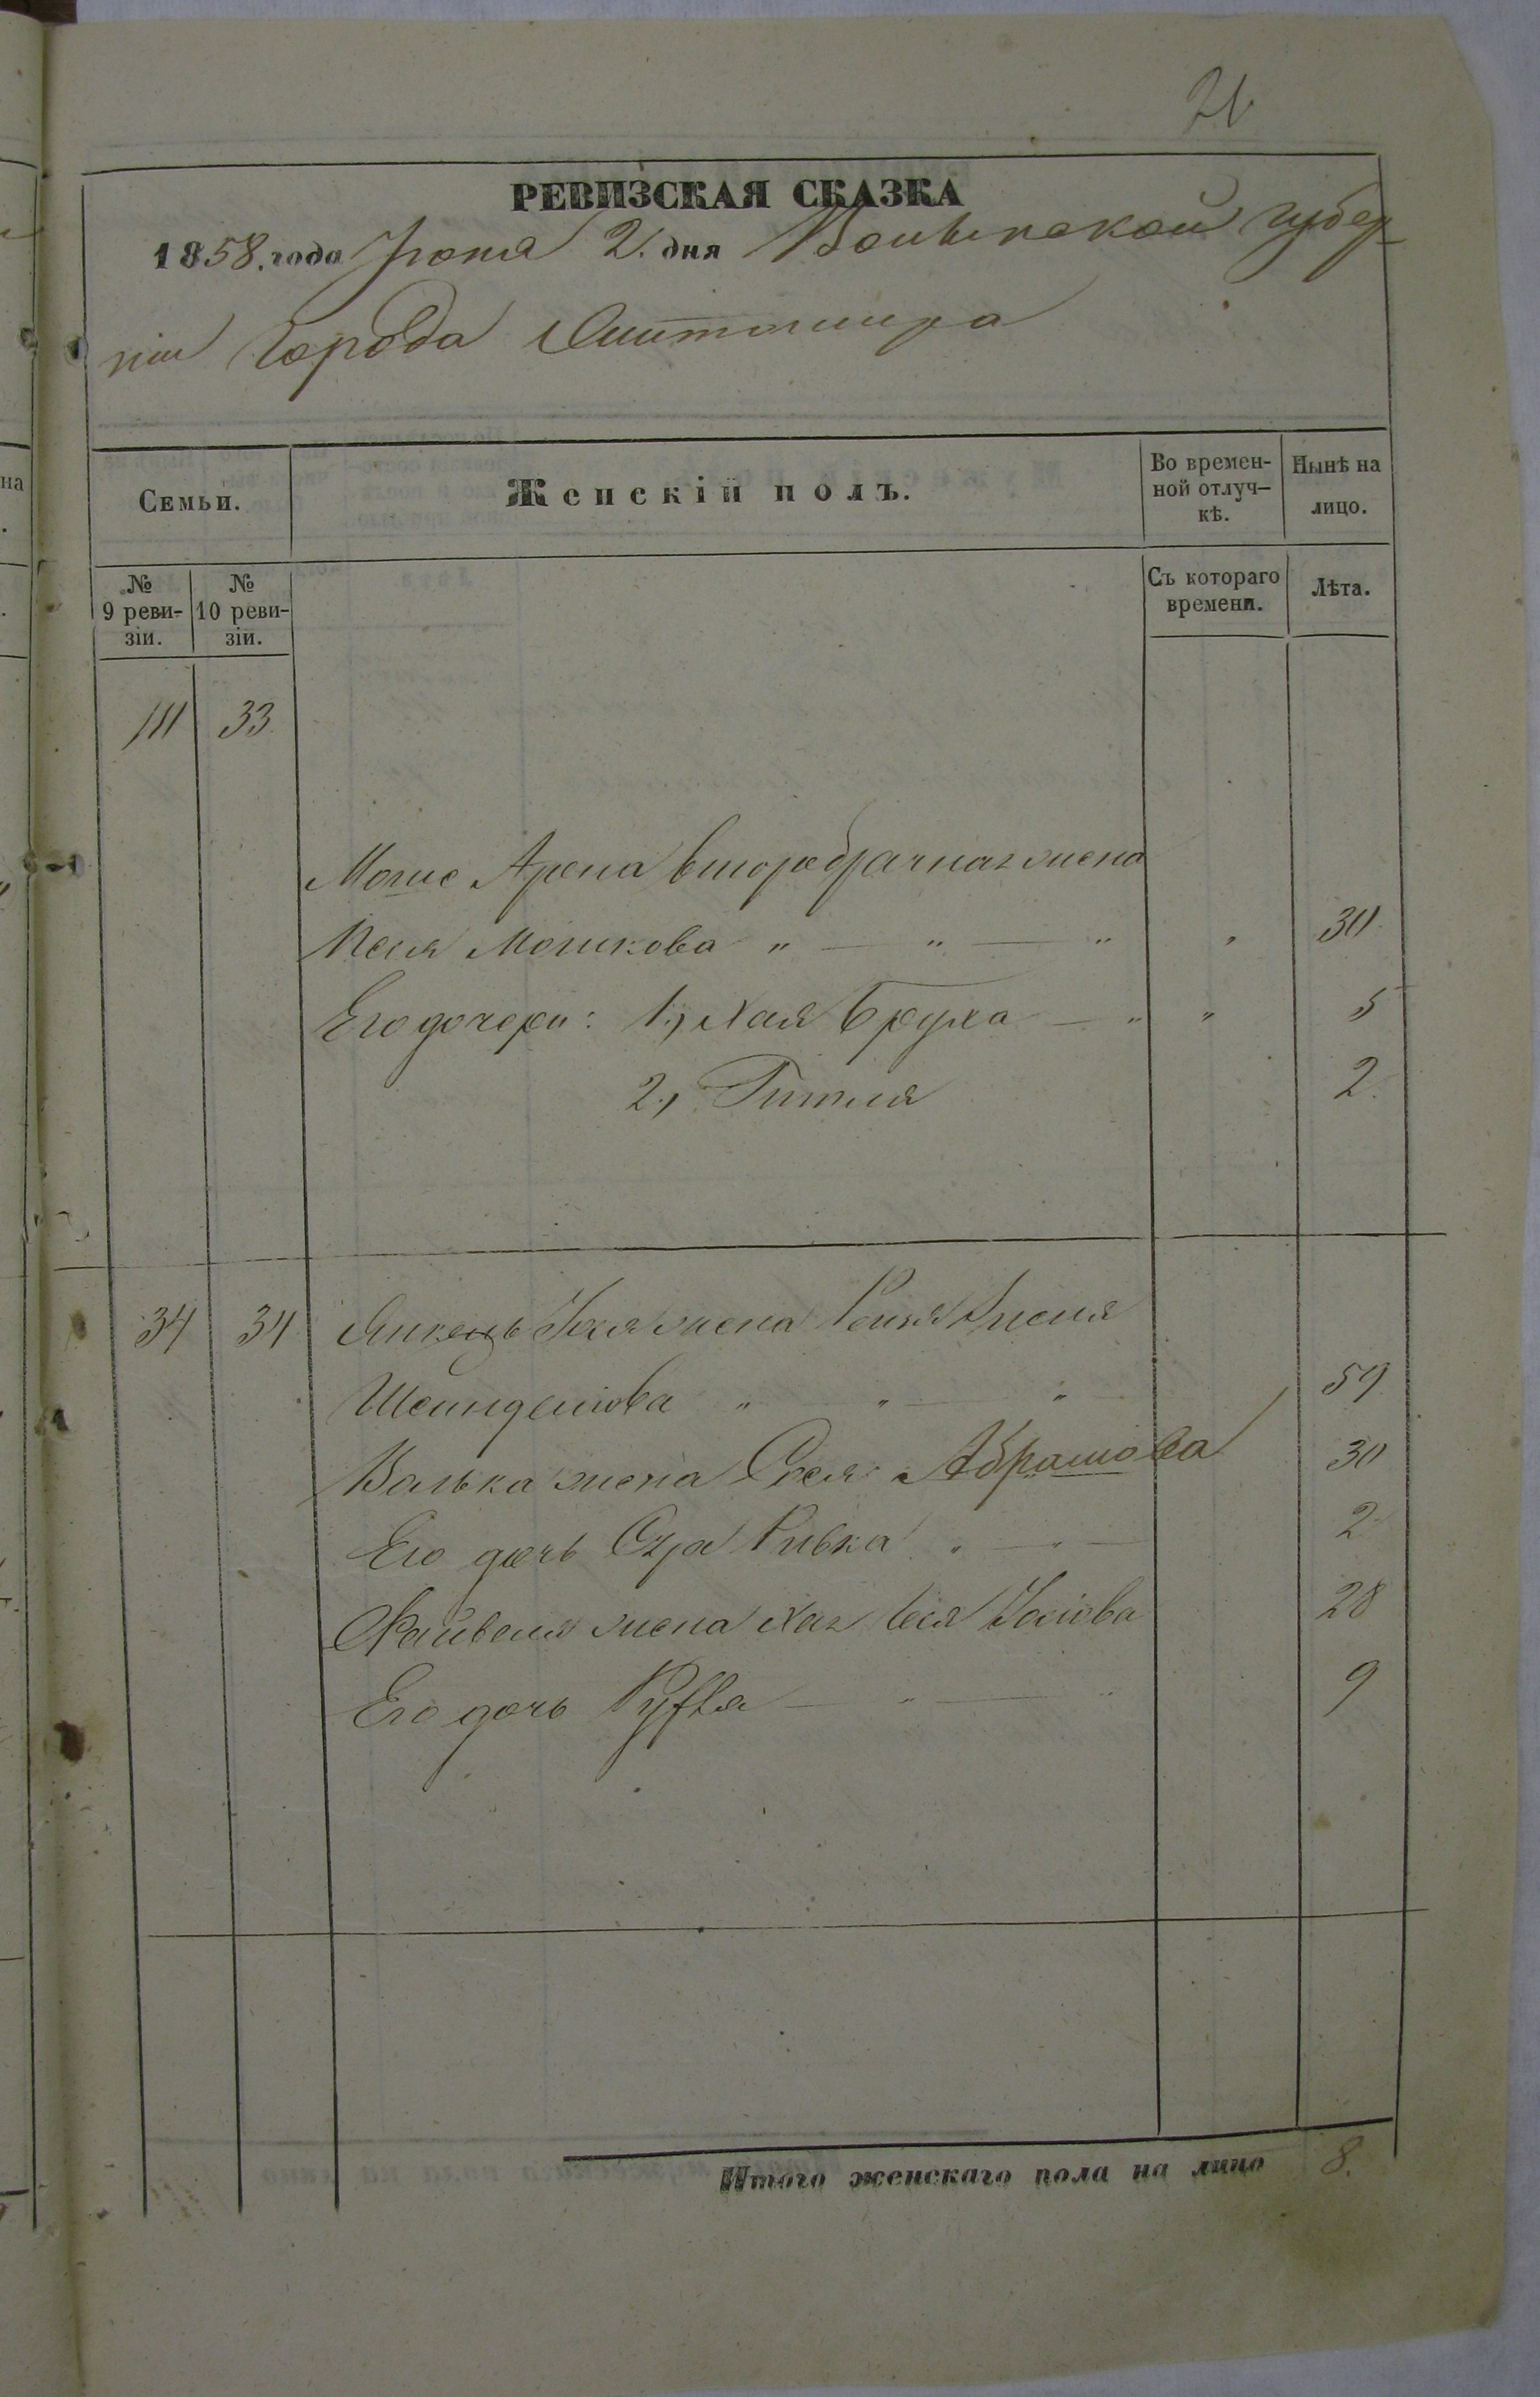 21
РЕВИЗСКАЯ СКАЗКА
1858. года Іюня 2. дня Волынской губер-
ніи Города Житомира
Семьи.
Женскій полъ.
Во времен-
ной отлуч-
кѣ.
Нынѣ на
лицо.
№
9 реви-
зіи.
№
10 реви-
зіи.
Съ котораго
времени.
Лѣта.
111 33
Арона второбрачная жена
Песя Мошкова " — " — " " 30
Его дочери: 1., Хая Бруха — " " 5
2., Гитля 2.
34 34 жена
Шейнделіова " " — " 59
Волька жена Сося Абрамова 30
Его дочь Сура Ривка " — " — 2
Файвеля жена Хая Іосіова 28
Его дочь — " — " 9
Итого женскаго пола на лицо 8.
на